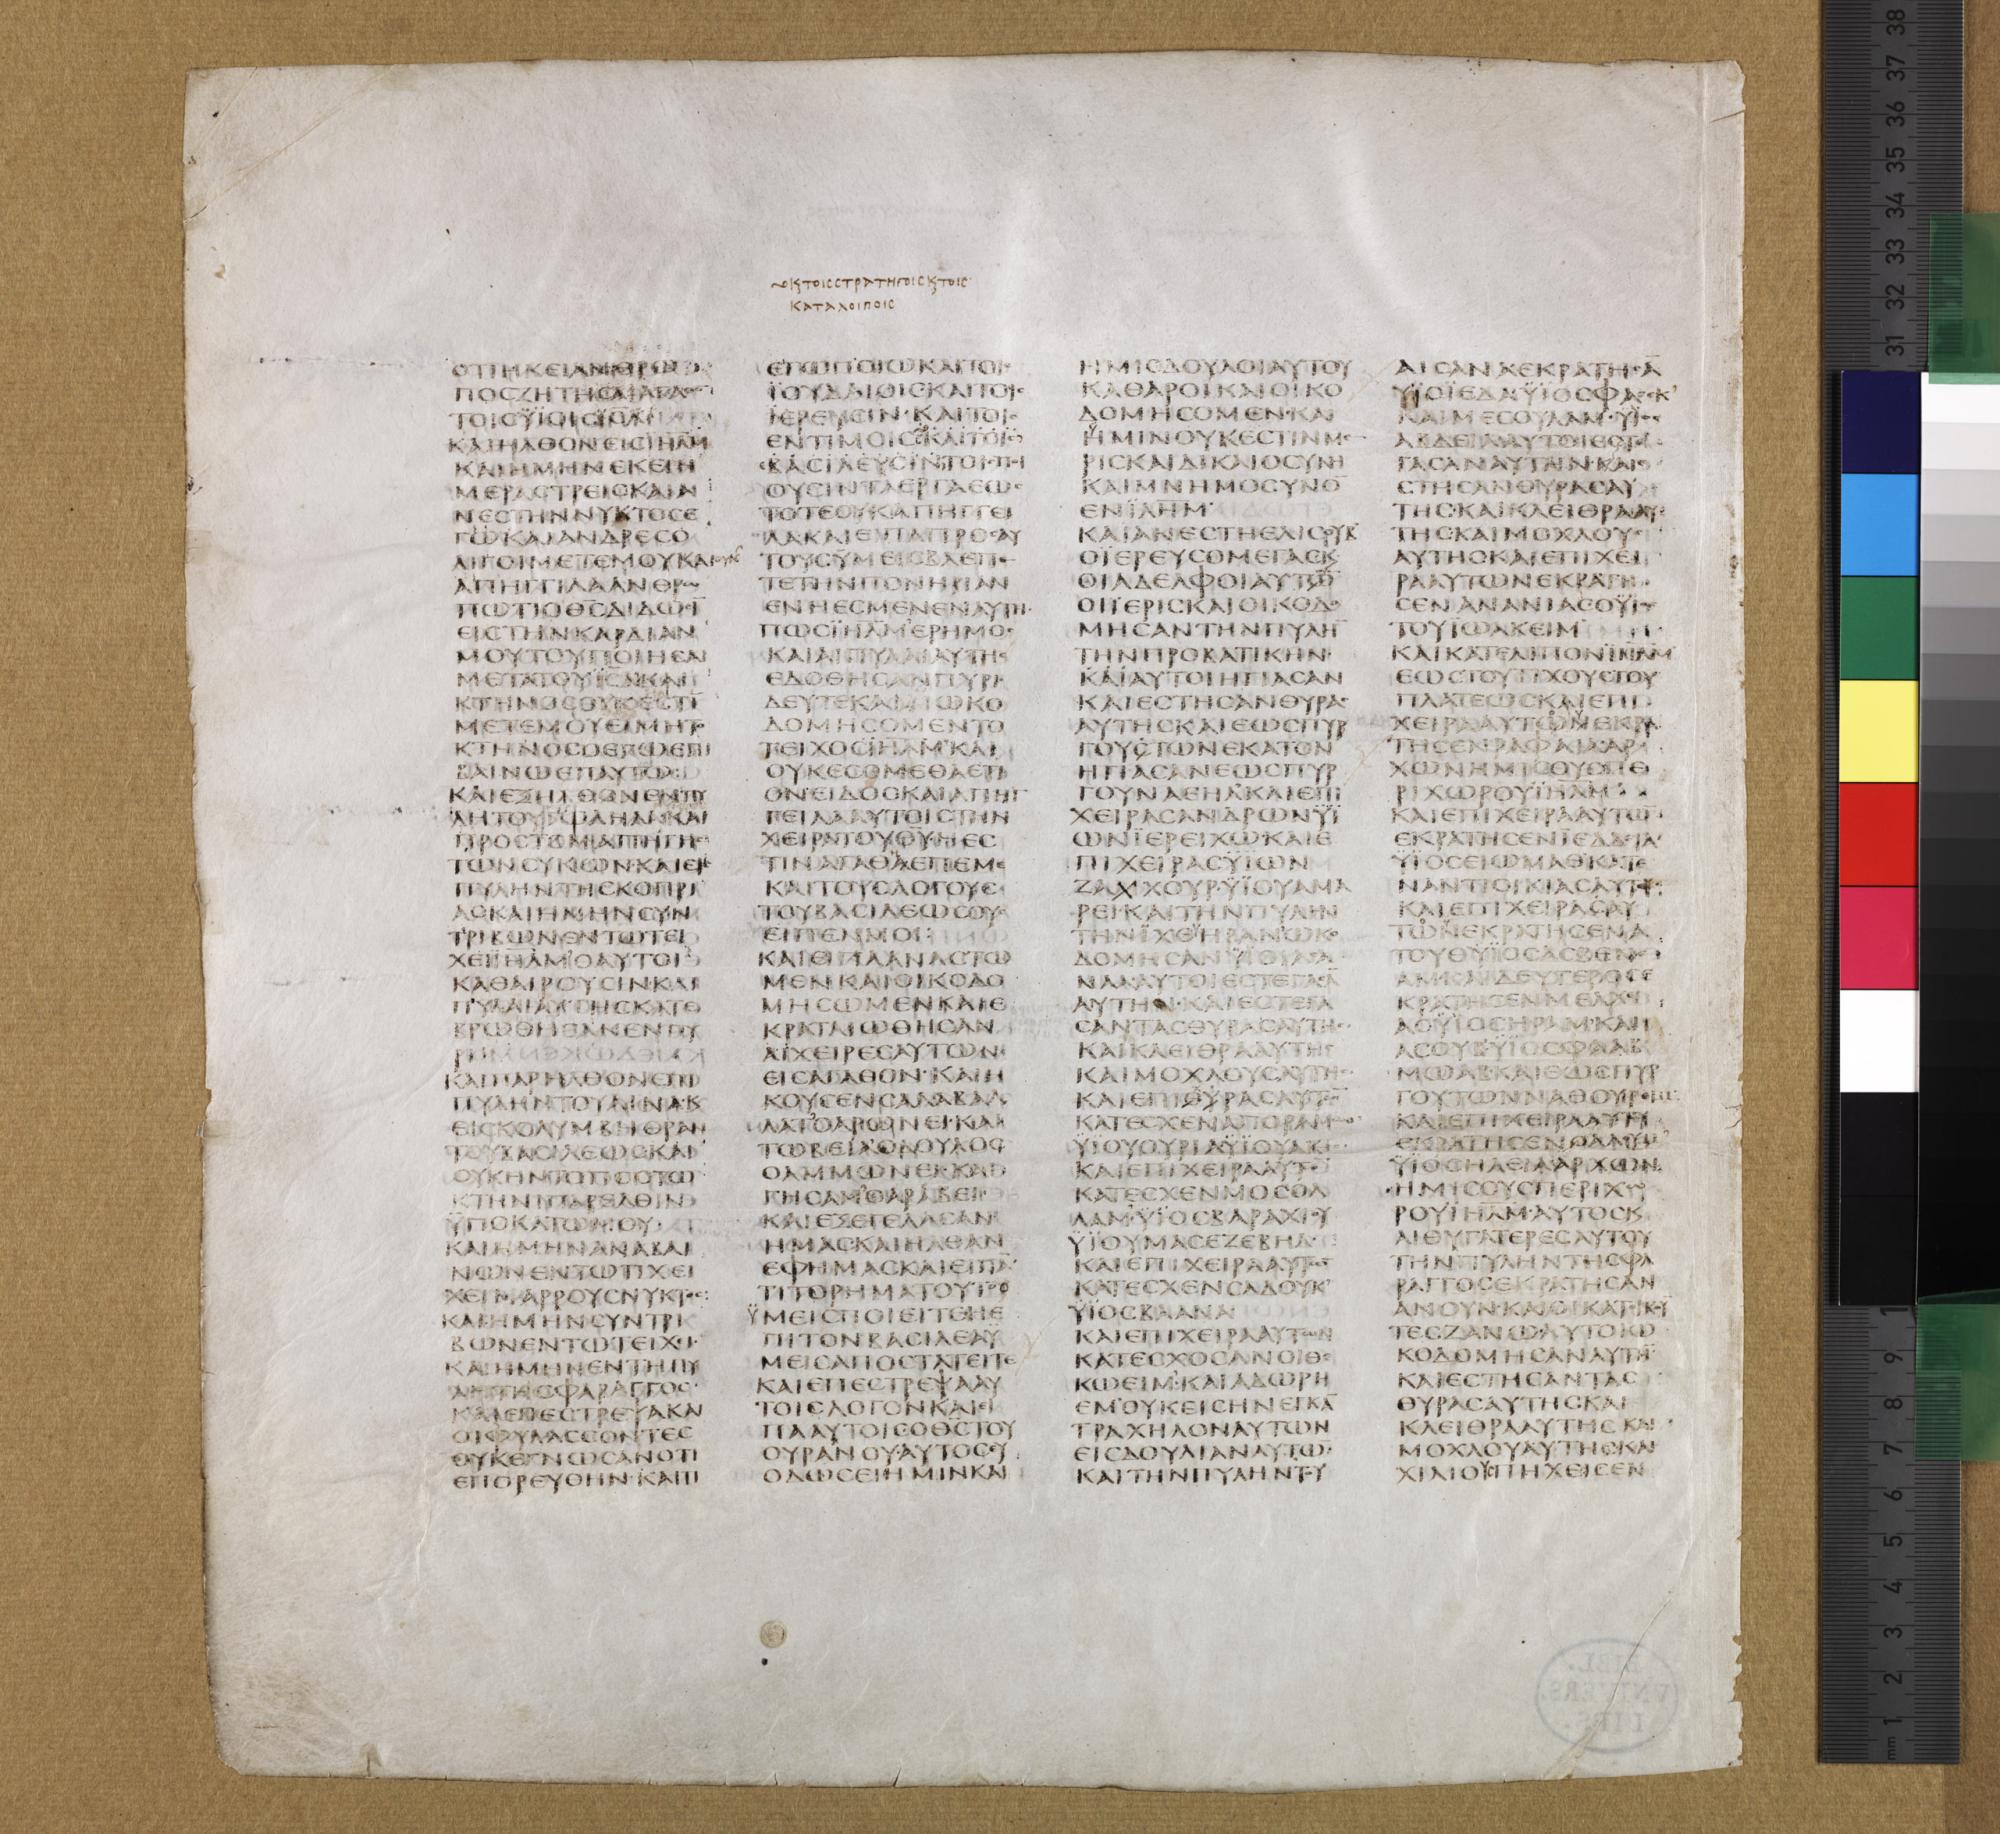 κτοιςστρατηγοιςκτοις
καταλοιποις
ΟΤΙΗΚΕΙΑΝΘΡΩ
ΠΟΣΖΗΤΗΣΑΙΑΓΑ
ΤΟΙΣΥΪΟΙΣ
ΚΑΙΗΛΘΟΝΕΙΣΙΗΛΜ
ΚΑΙΗΜΗΝΕΚΕΙΗ
ΜΕΡΑΣΤΡΕΙΣΚΑΙΑΝ
ΝΕΣΤΗΝΝΥΚΤΟΣΕ
ΓΩΚΑΙΑΝΔΡΕΣΟ
ΛΙΓΟΙΜΕΤΕΜΟΥΚΑΙ
ΑΠΗΓΓΙΛΑΑΝΘΡ
ΠΩΤΙΟΘΣΔΙΔΩΣΙ
ΕΙΣΤΗΝΚΑΡΔΙΑΝ
ΜΟΥΤΟΥΠΟΙΗΣΑΙ
ΜΕΤΑΤΟΥΙΣΛΚΑΙ
ΚΤΗΝΟΣΟΥΚΕΣΤΙ
ΜΕΤΕΜΟΥΕΙΜΗΤ
ΚΤΗΝΟΣΟΕΠΩΕΠΙ
ΒΑΙΝΩΕΠΑΥΤΩ
ΚΑΙΕΞΗΛΘΟΝΕΝΠΥ
ΛΗΤΟΥΓΩΛΗΛΑΚΑΙ
ΠΡΟΣΤΟΜΑΠΗΓΗ
ΤΩΝΣΥΚΩΝΚΑΙΕΙΣ
ΠΥΛΗΝΤΗΣΚΟΠΡΙ
ΑΣΚΑΙΗΜΗΝΣΥΝ
ΤΡΙΒΩΝΕΝΤΩΤΕΙ
ΧΕΙΙΗΛΜΟΑΥΤΟΙ
ΚΑΘΑΙΡΟΥΣΙΝΚΑΙ
ΠΥΛΑΙΑΥΤΗΣΚΑΤΕ
ΒΡΩΘΗΣΑΝΕΝΠΥ
ΡΙ
ΚΑΙΠΑΡΗΛΘΟΝΕΠΙ
ΠΥΛΗΝΤΟΥΑΙΝΑΚ
ΕΙΣΚΟΛΥΜΒΗΘΡΑΝ
ΤΟΥΒΑΣΙΛΕΩΣΚΑΙ
ΟΥΚΗΝΤΟΠΟΣΤΩ
ΚΤΗΝΙΠΑΡΕΛΘΙΝ
ΫΠΟΚΑΤΩΜΟΥ
ΚΑΙΗΜΗΝΑΝΑΒΑΙ
ΝΩΝΕΝΤΩΤΙΧΕΙ
ΧΕΙΜΑΡΡΟΥΣΝΥΚΤ
ΚΑΙΗΜΗΝΣΥΝΤΡΙ
ΒΩΝΕΝΤΩΤΕΙΧΙ
ΚΑΙΗΜΗΝΕΝΤΗΠΥ
ΛΗΤΗΣΦΑΡΑΓΓΟΣ
ΚΑΙΕΠΕΣΤΡΕΨΑΚΑΙ
ΟΙΦΥΛΑΣΣΟΝΤΕΣ
ΟΥΚΕΓΝΩΣΑΝΟΤΙ
ΕΠΟΡΕΥΘΗΝΚΑΙΤΙ
ΕΓΩΠΟΙΩΚΑΙΤΟΙ
ΪΟΥΔΑΙΟΙΣΚΑΙΤΟΙ
ΪΕΡΕΥΣΙΝΚΑΙΤΟΙ
ΕΝΤΙΜΟΙΣΚΑΙΤΟΙΣ
ΒΑΣΙΛΕΥΣΙΝΤΟΙ
ΟΥΣΙΝΤΑΕΡΓΑΕΩ
ΤΟΤΕΟΥΚΑΠΗΓΓΕΙ
ΛΑΚΑΙΕΙΠΑΠΡΟΣΑΥ
ΤΟΥΣΫΜΕΙΣΒΛΕΠΕ
ΤΕΤΗΝΠΟΝΗΡΙΑΝ
ΕΝΗΕΣΜΕΝΕΝΑΥΤΗ
ΠΩΣΙΗΛΜΕΡΗΜΟΣ
ΚΑΙΑΙΠΥΛΑΙΑΥΤΗΣ
ΕΔΟΘΗΣΑΝΠΥΡΙ
ΔΕΥΤΕΚΑΙΔΙΩΚΟ
ΔΟΜΗΣΟΜΕΝΤΟ
ΤΕΙΧΟΣΙΗΛΜΚΑΙ
ΟΥΚΕΣΟΜΕΘΑΕΤΙ
ΟΝΕΙΔΟΣΚΑΙΑΠΗΓ
ΓΕΙΛΑΑΥΤΟΙΣΤΗΝ
ΧΕΙΡΑΤΟΥΘΥΗΕΣ
ΤΙΝΑΓΑΘΗΕΠΕΜΕ
ΚΑΙΤΟΥΣΛΟΓΟΥΣ
ΤΟΥΒΑΣΙΛΕΩΣΟΥΣ
ΕΙΠΕΝΜΟΙ
ΚΑΙΕΙΠΑΑΝΑΣΤΩ
ΜΕΝΚΑΙΟΙΚΟΔΟ
ΜΗΣΩΜΕΝΚΑΙΕ
ΚΡΑΤΑΙΩΘΗΣΑΝ
ΑΙΧΕΙΡΕΣΑΥΤΩΝ
ΕΙΣΑΓΑΘΟΝΚΑΙΗ
ΚΟΥΣΕΝΣΑΝΑΒΑΛ
ΛΑΤΟΑΡΩΝΕΙΚΑΙ
ΤΩΒΕΙΑΟΔΟΥΛΟΣ
ΟΑΜΜΩΝΕΙΚΑΙ
ΓΗΣΑΜΟΑΡΑΒΕΙ
ΚΑΙΕΞΕΓΕΛΑΣΑΝ
ΗΜΑΣΚΑΙΗΛΘΑΝ
ΕΦΗΜΑΣΚΑΙΕΙΠΑ
ΤΙΤΟΡΗΜΑΤΟΥΤΟ
ΫΜΕΙΣΠΟΙΕΙΤΕΗΕ
ΠΙΤΟΝΒΑΣΙΛΕΑΫ
ΜΕΙΣΑΠΟΣΤΑΤΕΙΤΕ
ΚΑΙΕΠΕΣΤΡΕΨΑΑΥ
ΤΟΙΣΛΟΓΟΝΚΑΙΕΙ
ΠΑΑΥΤΟΙΣΟΘΣΤΟΥ
ΟΥΡΑΝΟΥΑΥΤΟΣΕΥ
ΟΔΩΣΕΙΗΜΙΝΚΑΙ
ΗΜΙΣΔΟΥΛΟΙΑΥΤΟΥ
ΚΑΘΑΡΟΙΚΑΙΟΙΚΟ
ΔΟΜΗΣΟΜΕΝΚΑΙ
ΫΜΙΝΟΥΚΕΣΤΙΝΜΕ
ΡΙΣΚΑΙΔΙΚΑΙΟΣΥΝΗ
ΚΑΙΜΝΗΜΟΣΥΝΟ
ΕΝΪΛΗΜ
ΚΑΙΑΝΕΣΤΗΕΛΙΣΟΥΒ
ΟΪΕΡΕΥΣΟΜΕΓΑΣΚ
ΟΙΑΔΕΛΦΟΙΑΥΤΟΥ
ΟΙΪΕΡΙΣΚΑΙΟΙΚΟΔΟ
ΜΗΣΑΝΤΗΝΠΥΛΗ
ΤΗΝΠΡΟΒΑΤΙΚΗΝ
ΚΑΙΑΥΤΟΙΗΓΙΑΣΑΝ
ΚΑΙΕΣΤΗΣΑΝΘΥΡΑΣ
ΑΥΤΗΣΚΑΙΕΩΣΠΥΡ
ΓΟΥΣΤΩΝΕΚΑΤΟΝ
ΗΓΙΑΣΑΝΕΩΣΠΥΡ
ΓΟΥΝΑΕΗΛΚΑΙΕΠΙ
ΧΕΙΡΑΣΑΝΔΡΩΝΫΙ
ΩΝΙΕΡΕΙΧΩΚΑΙΕ
ΠΙΧΕΙΡΑΣΫΙΩΝ
ΖΑΧΧΟΥΡΫΙΟΥΑΜΑ
ΡΕΙΚΑΙΤΗΝΠΥΛΗΝ
ΤΗΝΪΧΘΗΡΑΝΩΚΟ
ΔΟΜΗΣΑΝΫΙΟΙΑΣΑ
ΝΑΑΑΥΤΟΙΕΣΤΕΓΑΣΑ
ΑΥΤΗΝΚΑΙΕΣΤΕΓΑ
ΣΑΝΤΑΣΘΥΡΑΣΑΥΤΗΣ
ΚΑΙΚΛΕΙΘΡΑΑΥΤΗΣ
ΚΑΙΜΟΧΛΟΥΣΑΥΤΗΣ
ΚΑΙΕΠΙΧΕΙΡΑΣΑΥΤ
ΚΑΤΕΣΧΕΝΑΠΟΡΑΜ
ΫΙΟΥΟΥΡΙΑΫΙΟΥΑΚΩ
ΚΑΙΕΠΙΧΕΙΡΑΑΥΤ
ΚΑΤΕΣΧΕΝΜΟΣΟΛ
ΛΑΜΫΙΟΣΒΑΡΑΧΙΟΥ
ΫΙΟΥΜΑΣΕΖΕΒΗΛ
ΚΑΙΕΠΙΧΕΙΡΑΑΥΤ
ΚΑΤΕΣΧΕΝΣΑΔΟΥΚ
ΫΙΟΣΒΑΑΝΑ
ΚΑΙΕΠΙΧΕΙΡΑΑΥΤΩΝ
ΚΑΤΕΣΧΟΣΑΝΟΙΘΕ
ΚΩΕΙΜΚΑΙΑΔΩΡΗ
ΕΜΟΥΚΕΙΣΗΝΕΓΚΑ
ΤΡΑΧΗΛΟΝΑΥΤΩΝ
ΕΙΣΔΟΥΛΙΑΝΑΥΤΩ
ΚΑΙΤΗΝΠΥΛΗΝΤΟΥ
ΑΙΣΑΝΑΕΚΡΑΤΗΣΑ
ΥΪΟΙΕΔΑΫΪΟΣΦΑΣΕΚ
ΚΑΙΜΕΣΟΥΛΑΜΫΙ
ΑΒΔΕΙΑΑΥΤΟΙΕΣΤΕ
ΓΑΣΑΝΑΥΤΗΝΚΑΙ
ΣΤΗΣΑΝΘΥΡΑΣΑΥ
ΤΗΣΚΑΙΚΛΕΙΘΡΑΑΥ
ΤΗΣΚΑΙΜΟΧΛΟΥΣ
ΑΥΤΗΣΚΑΙΕΠΙΧΕΙ
ΡΑΑΥΤΩΝΕΚΡΑΤΗ
ΣΕΝΑΝΑΝΙΑΣΟΫΙΟΣ
ΤΟΥΪΩΑΚΕΙΜ
ΚΑΙΚΑΤΕΛΙΠΟΝΙΗΛΜ
ΕΩΣΤΟΥΤΙΧΟΥΣΤΟΥ
ΠΛΑΤΕΩΣΚΑΙΕΠΙ
ΧΕΙΡΑΑΥΤΩΝΕΚΡΑ
ΤΗΣΕΝΡΑΦΑΙΑΑΡ
ΧΩΝΗΜΙΣΟΥΣΠΕ
ΡΙΧΩΡΟΥΪΗΛΜ
ΚΑΙΕΠΙΧΕΙΡΑΑΥΤΩ
ΕΚΡΑΤΗΣΕΝΙΕΔΔΑΙΑ
ΫΙΟΣΕΙΩΜΑΘΚΑΤΕ
ΝΑΝΤΙΟΙΚΙΑΣΑΥΤ
ΚΑΙΕΠΙΧΕΙΡΑΣΑΥ
ΤΩΝΕΚΡΑΤΗΣΕΝΑ
ΤΟΥΘΫΙΟΣΑΣΒΕΝ
ΑΜΚΑΙΔΕΥΤΕΡΟΣΕ
ΚΡΑΤΗΣΕΝΜΕΛΧΙ
ΑΣΫΙΟΣΗΡΑΜΚΑΙ
ΑΣΟΥΒΫΙΟΣΦΑΑΒ
ΜΩΑΒΚΑΙΕΩΣΠΥΡ
ΓΟΥΤΩΝΝΑΘΟΥΡΙΜ
ΚΑΙΕΠΙΧΕΙΡΑΑΥΤΗ
ΕΚΡΑΤΗΣΕΝΘΑΛΜΥ
ΫΙΟΣΗΛΕΙΑΑΡΧΩΝ
ΗΜΙΣΟΥΣΠΕΡΙΧΩ
ΡΟΥΪΗΛΜΑΥΤΟΣΚ
ΑΙΘΥΓΑΤΕΡΕΣΑΥΤΟΥ
ΤΗΝΠΥΛΗΝΤΗΣΦΑ
ΡΑΓΓΟΣΕΚΡΑΤΗΣΑΝ
ΑΝΟΥΝΚΑΙΟΙΚΑΤΟΙΚ
ΤΕΣΖΑΝΩΑΥΤΟΙΩ
ΚΟΔΟΜΗΣΑΝΑΥΤΗ
ΚΑΙΕΣΤΗΣΑΝΤΑΣ
ΘΥΡΑΣΑΥΤΗΣΚΑΙ
ΚΛΕΙΘΡΑΑΥΤΗΣΚΑΙ
ΜΟΧΛΟΥΑΥΤΗΣΚΑΙ
ΧΙΛΙΟΥΣΠΗΧΕΙΣΕΝ
BIBL.
VNIVERS.
LIPS.